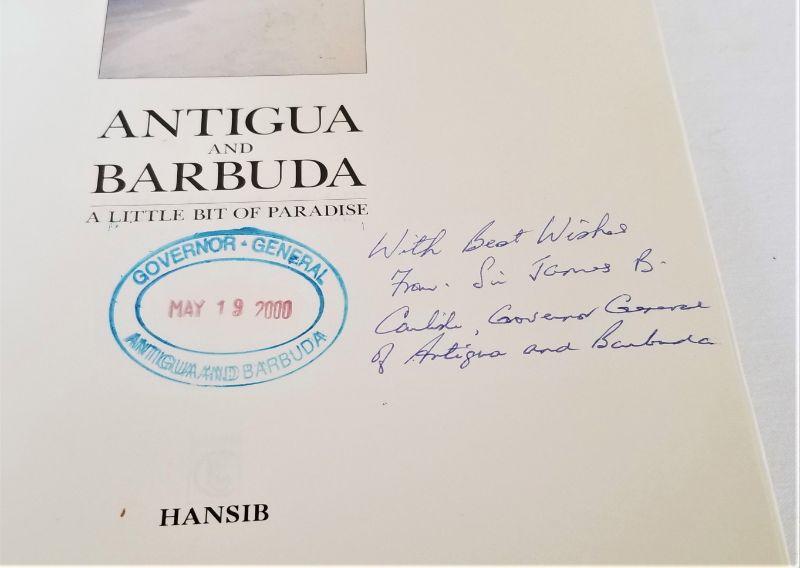 ANTIGUA
AND
BARBUDA
A LITTLE BIT OF PARADISE
GOVERNOR - GENERAL
MAY 19 2000
ANTIGUA AND BARBUDA
With Best Wishes
From. Sir James B.
Carlisle, Governor General
of Antigua and Barbuda
HANSIB